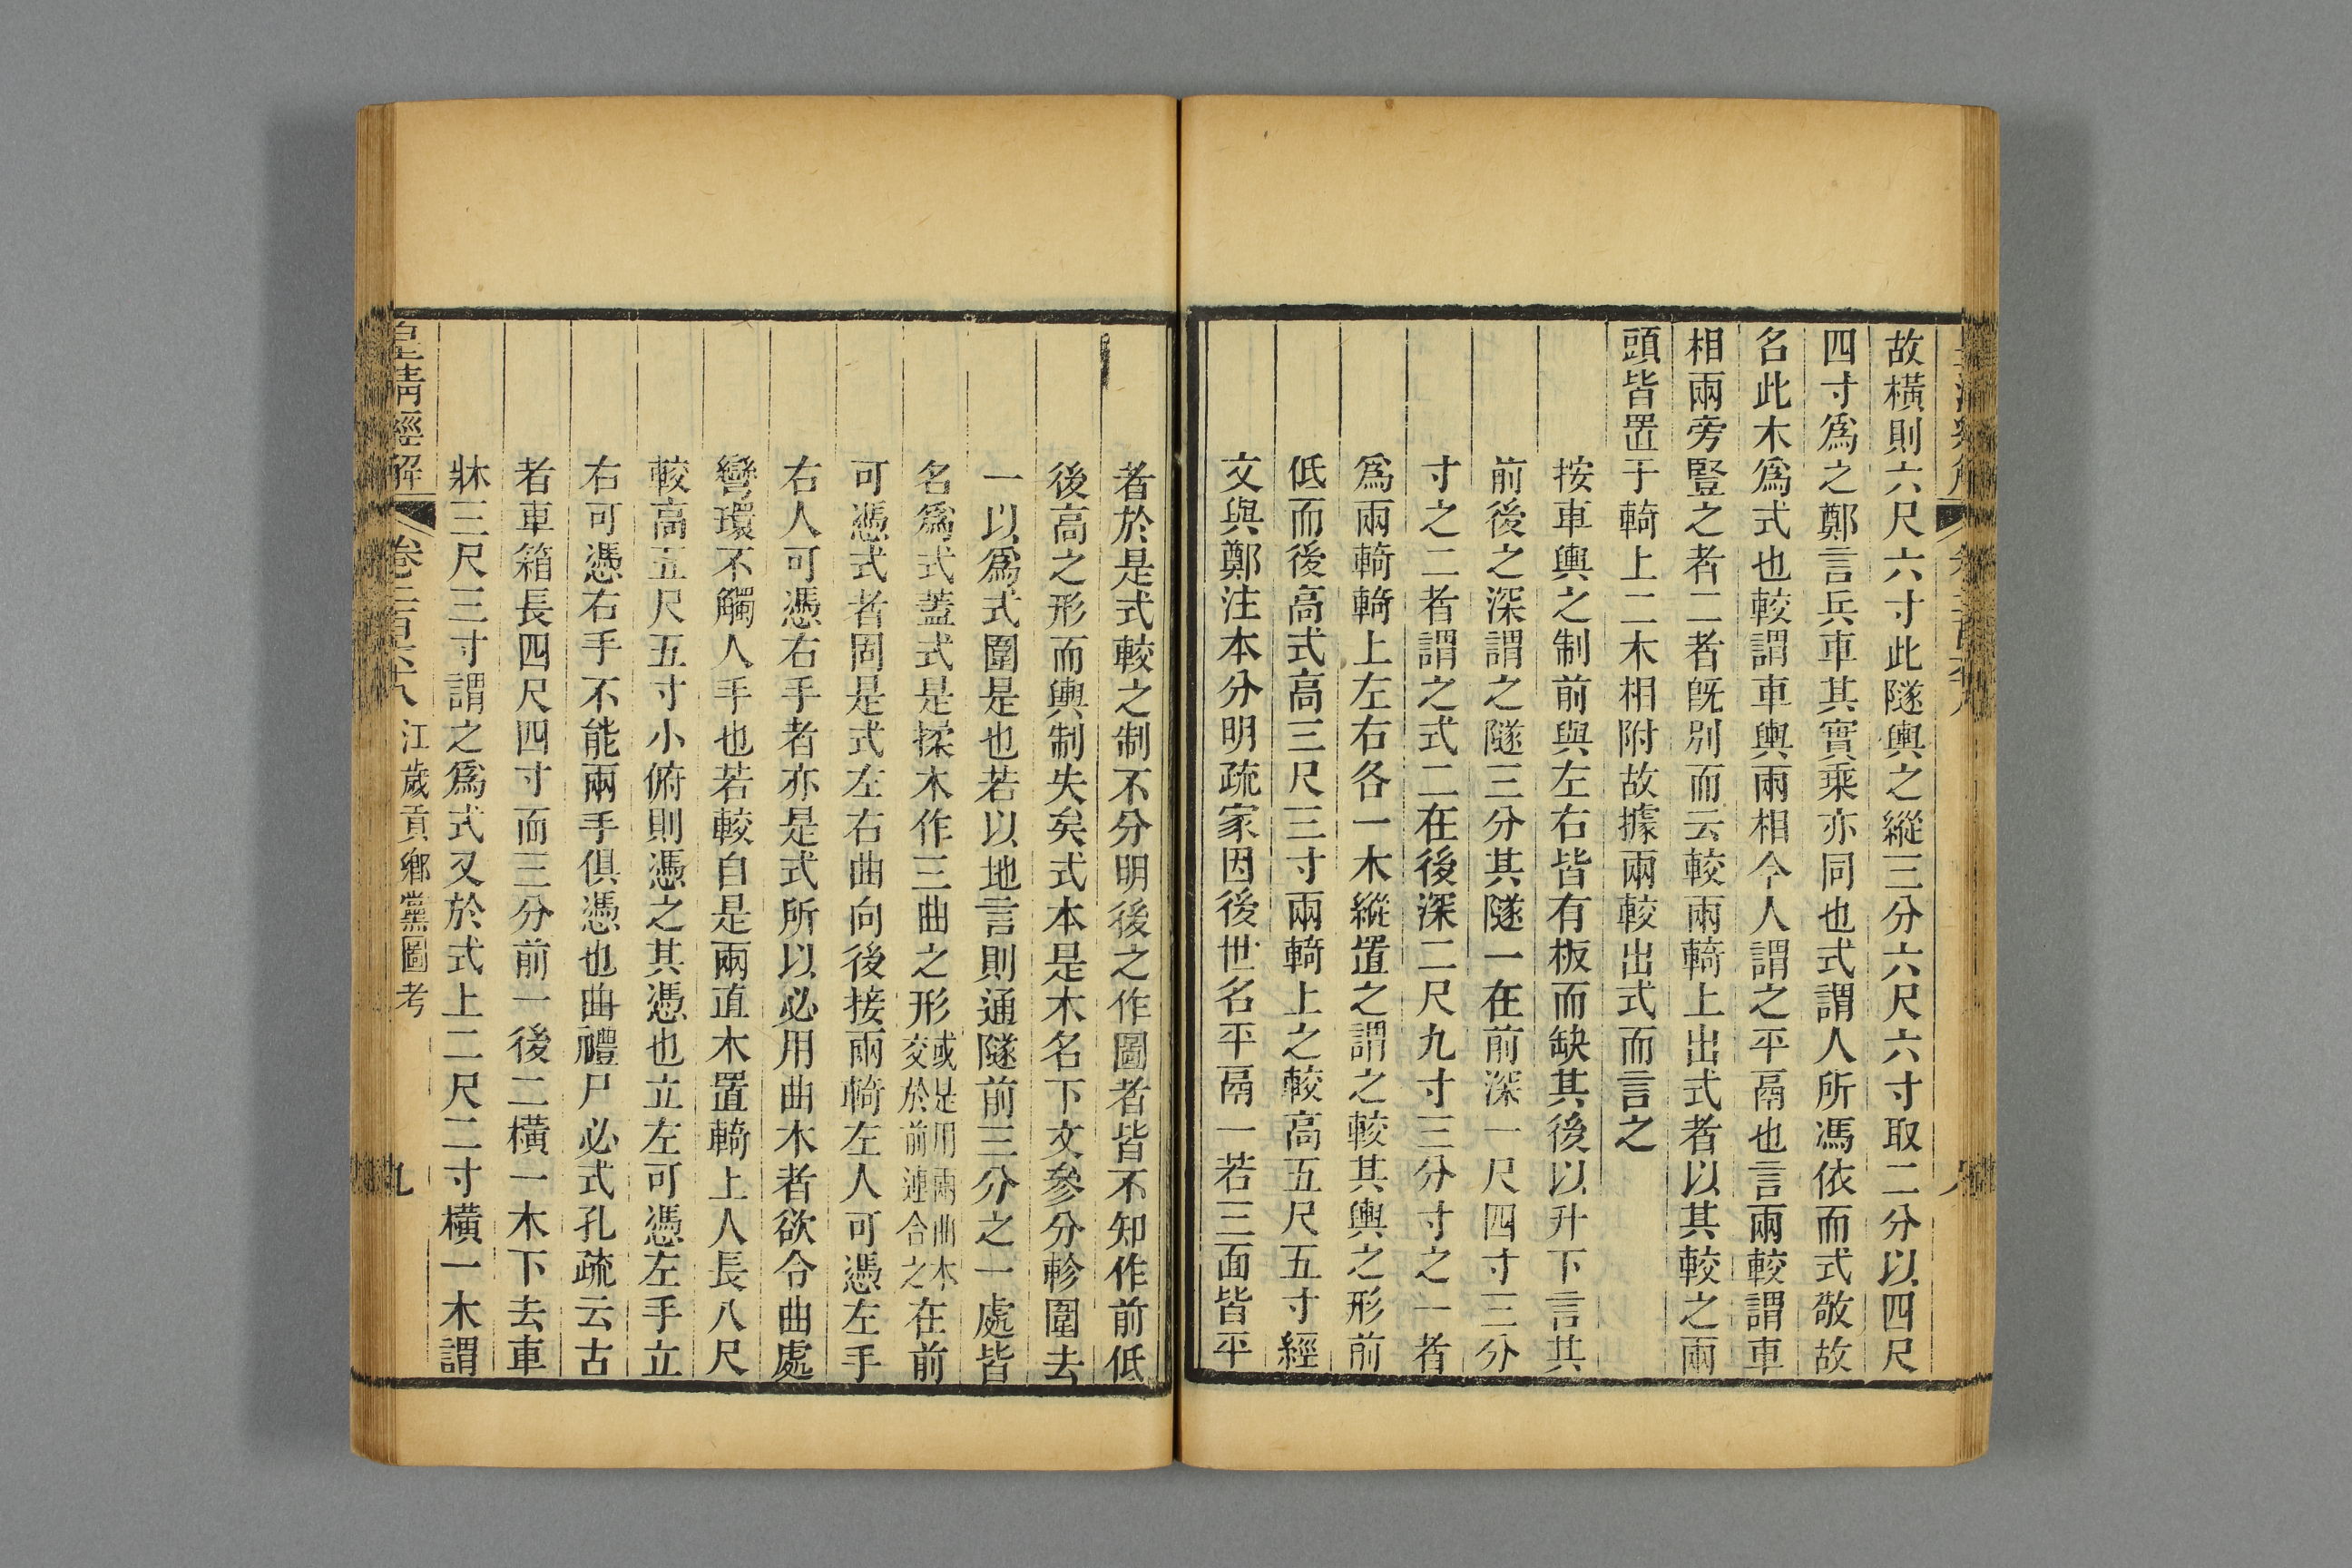 故橫則六尺六寸此隧輿之縱三分六尺六寸取二分以四尺
四寸爲之鄭言兵車其實乘亦同也式謂人所馮依而式敬故
名此木爲式也較謂車輿兩相今人謂之平鬲也言兩較謂車
相兩旁豎之者二者旣別而云較兩輢上出式者以其較之兩
頭皆置于輢上二木相附故據兩較出式而言之
按車輿之制前與左右皆有板而缺其後以升下言其
前後之深謂之隧三分其隧一在前深一尺四寸三分
寸之二者謂之式二在後深二尺九寸三分寸之一者
爲兩輢輢上左右各一木縱置之謂之較其輿之形前
低而後高式高三尺三寸兩輢上之較高五尺五寸經
文與鄭注本分明疏家因後世名平鬲一若三面皆平
者於是式較之制不分明後之作圖者皆不知作前低
後高之形而輿制失矣式本是木名下文參分軫圍去
一以爲式圍是也若以地言則通隧前三分之一處皆
名爲式蓋式是揉木作三曲之形或是用兩曲木交於前連合之在前
可憑式者固是式左右曲向後接兩輢左人可憑左手
右人可憑右手者亦是式所以必用曲木者欲令曲處
彎環不觸人手也若較自是兩直木置輢上人長八尺
較高五尺五寸小俯則憑之其憑也立左可憑左手立
右可憑右手不能兩手俱憑也曲禮尸必式孔疏云古
者車箱長四尺四寸而三分前一後二橫一木下去車
牀三尺三寸謂之爲式又於式上二尺二寸橫一木謂
皇清經解 卷二百六十八 江歲貢鄉黨圖考 九